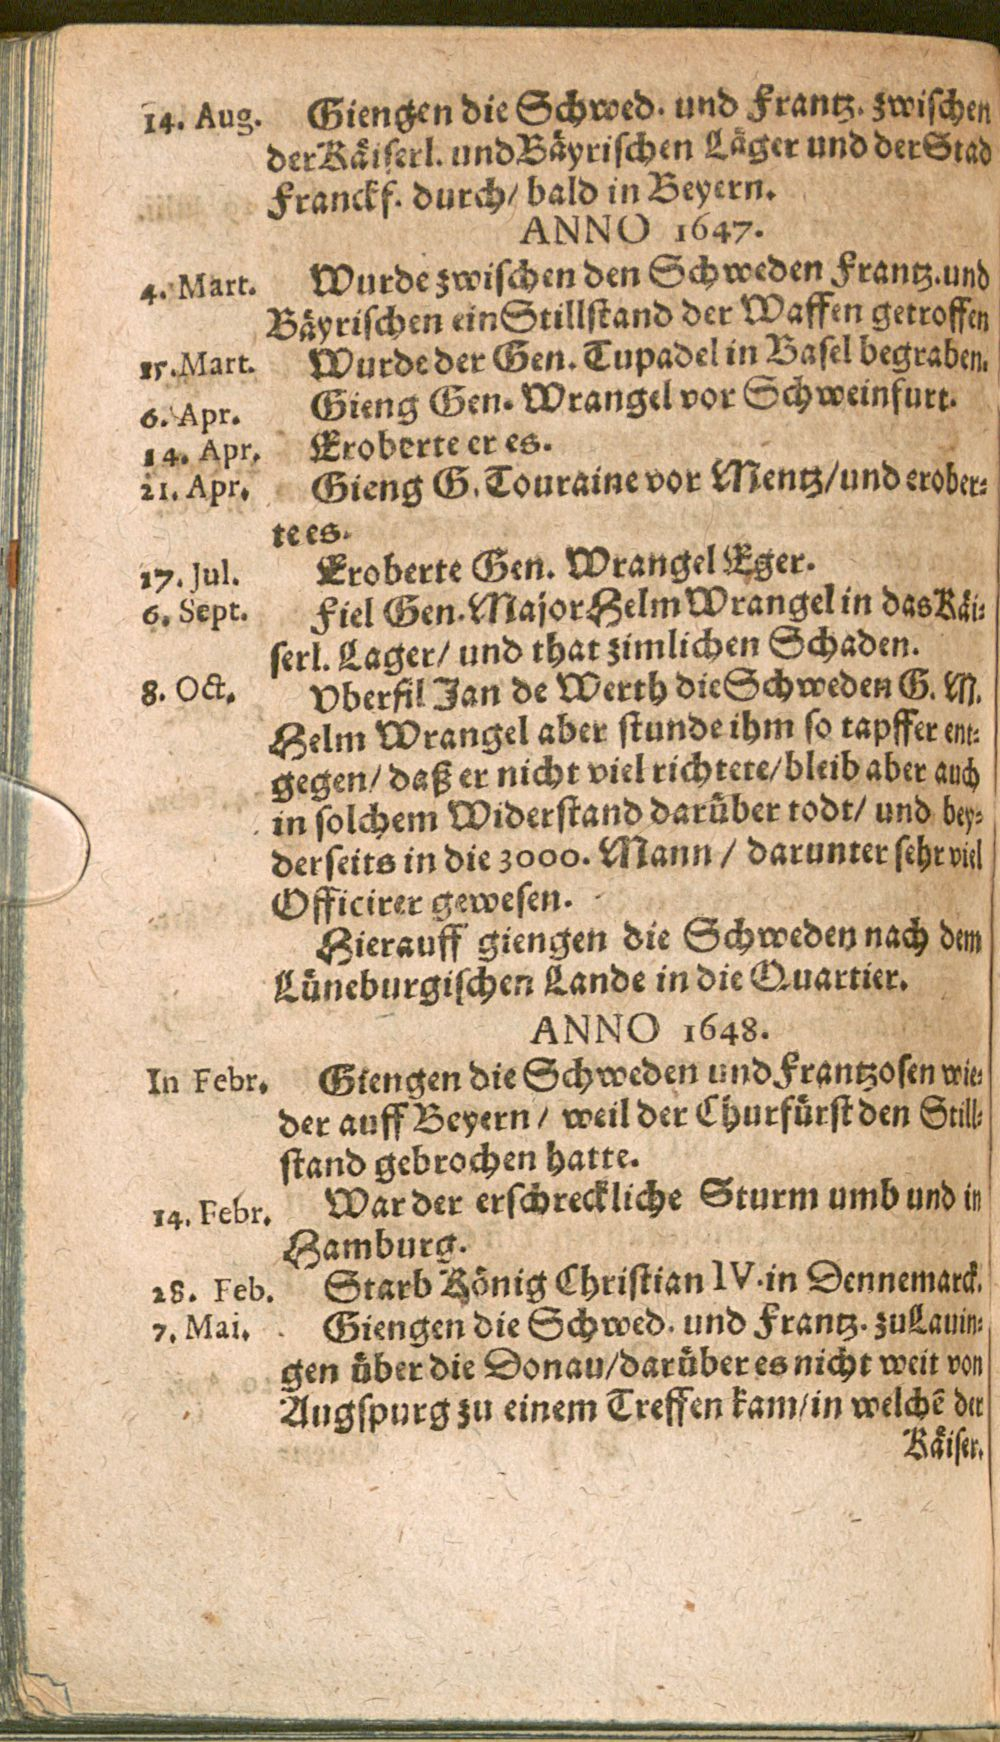 14. Aug. Giengen die Schwed. und Frantz. zwischen
der Käiserl. und Bäyrischen Läger und der Stad
Franckf. durch/ bald in Beyern.
ANNO 1647.
4. Mart. Wurde zwischen den Schweden Frantz. und
Bäyrischen ein Stillstand der Waffen getroffen
15. Mart. Wurde der Gen. Tupadel in Basel begraben.
6. Apr. Gieng Gen. Wrangel vor Schweinfurt.
14. Apr. Eroberte er es.
21. Apr. Gieng G. Touraine vor Mentz/ und erober-
te es.
17. Jul. Eroberte Gen. Wrangel Eger.
6. Sept. Fiel Gen. Major Helm Wrangel in das Käi-
serl. Lager/ und that zimlichen Schaden.
8. Oct. Vberfil Jan de Werth die Schweden G. M.
Helm Wrangel aber stunde ihm so tapffer ent-
gegen/ daß er nicht viel richtete/ bleib aber auch
in solchem Widerstand darüber todt/ und bey-
derseits in die 3000. Mann / darunter sehr viel
Officirer gewesen.
Hierauff giengen die Schweden nach dem
Lüneburgischen Lande in die Quartier.
ANNO 1648.
In Febr. Giengen die Schweden und Frantzosen wie-
der auff Beyern / weil der Churfürst den Still-
stand gebrochen hatte.
14. Febr. War der erschreckliche Sturm umb und in
Hamburg.
28. Feb. Starb König Christian IV. in Dennemarck.
7. Mai. Giengen die Schwed. und Frantz. zu Lauin-
gen über die Donau/ darüber es nicht weit von
Augspurg zu einem Treffen kam/ in welchē der
Käiser.